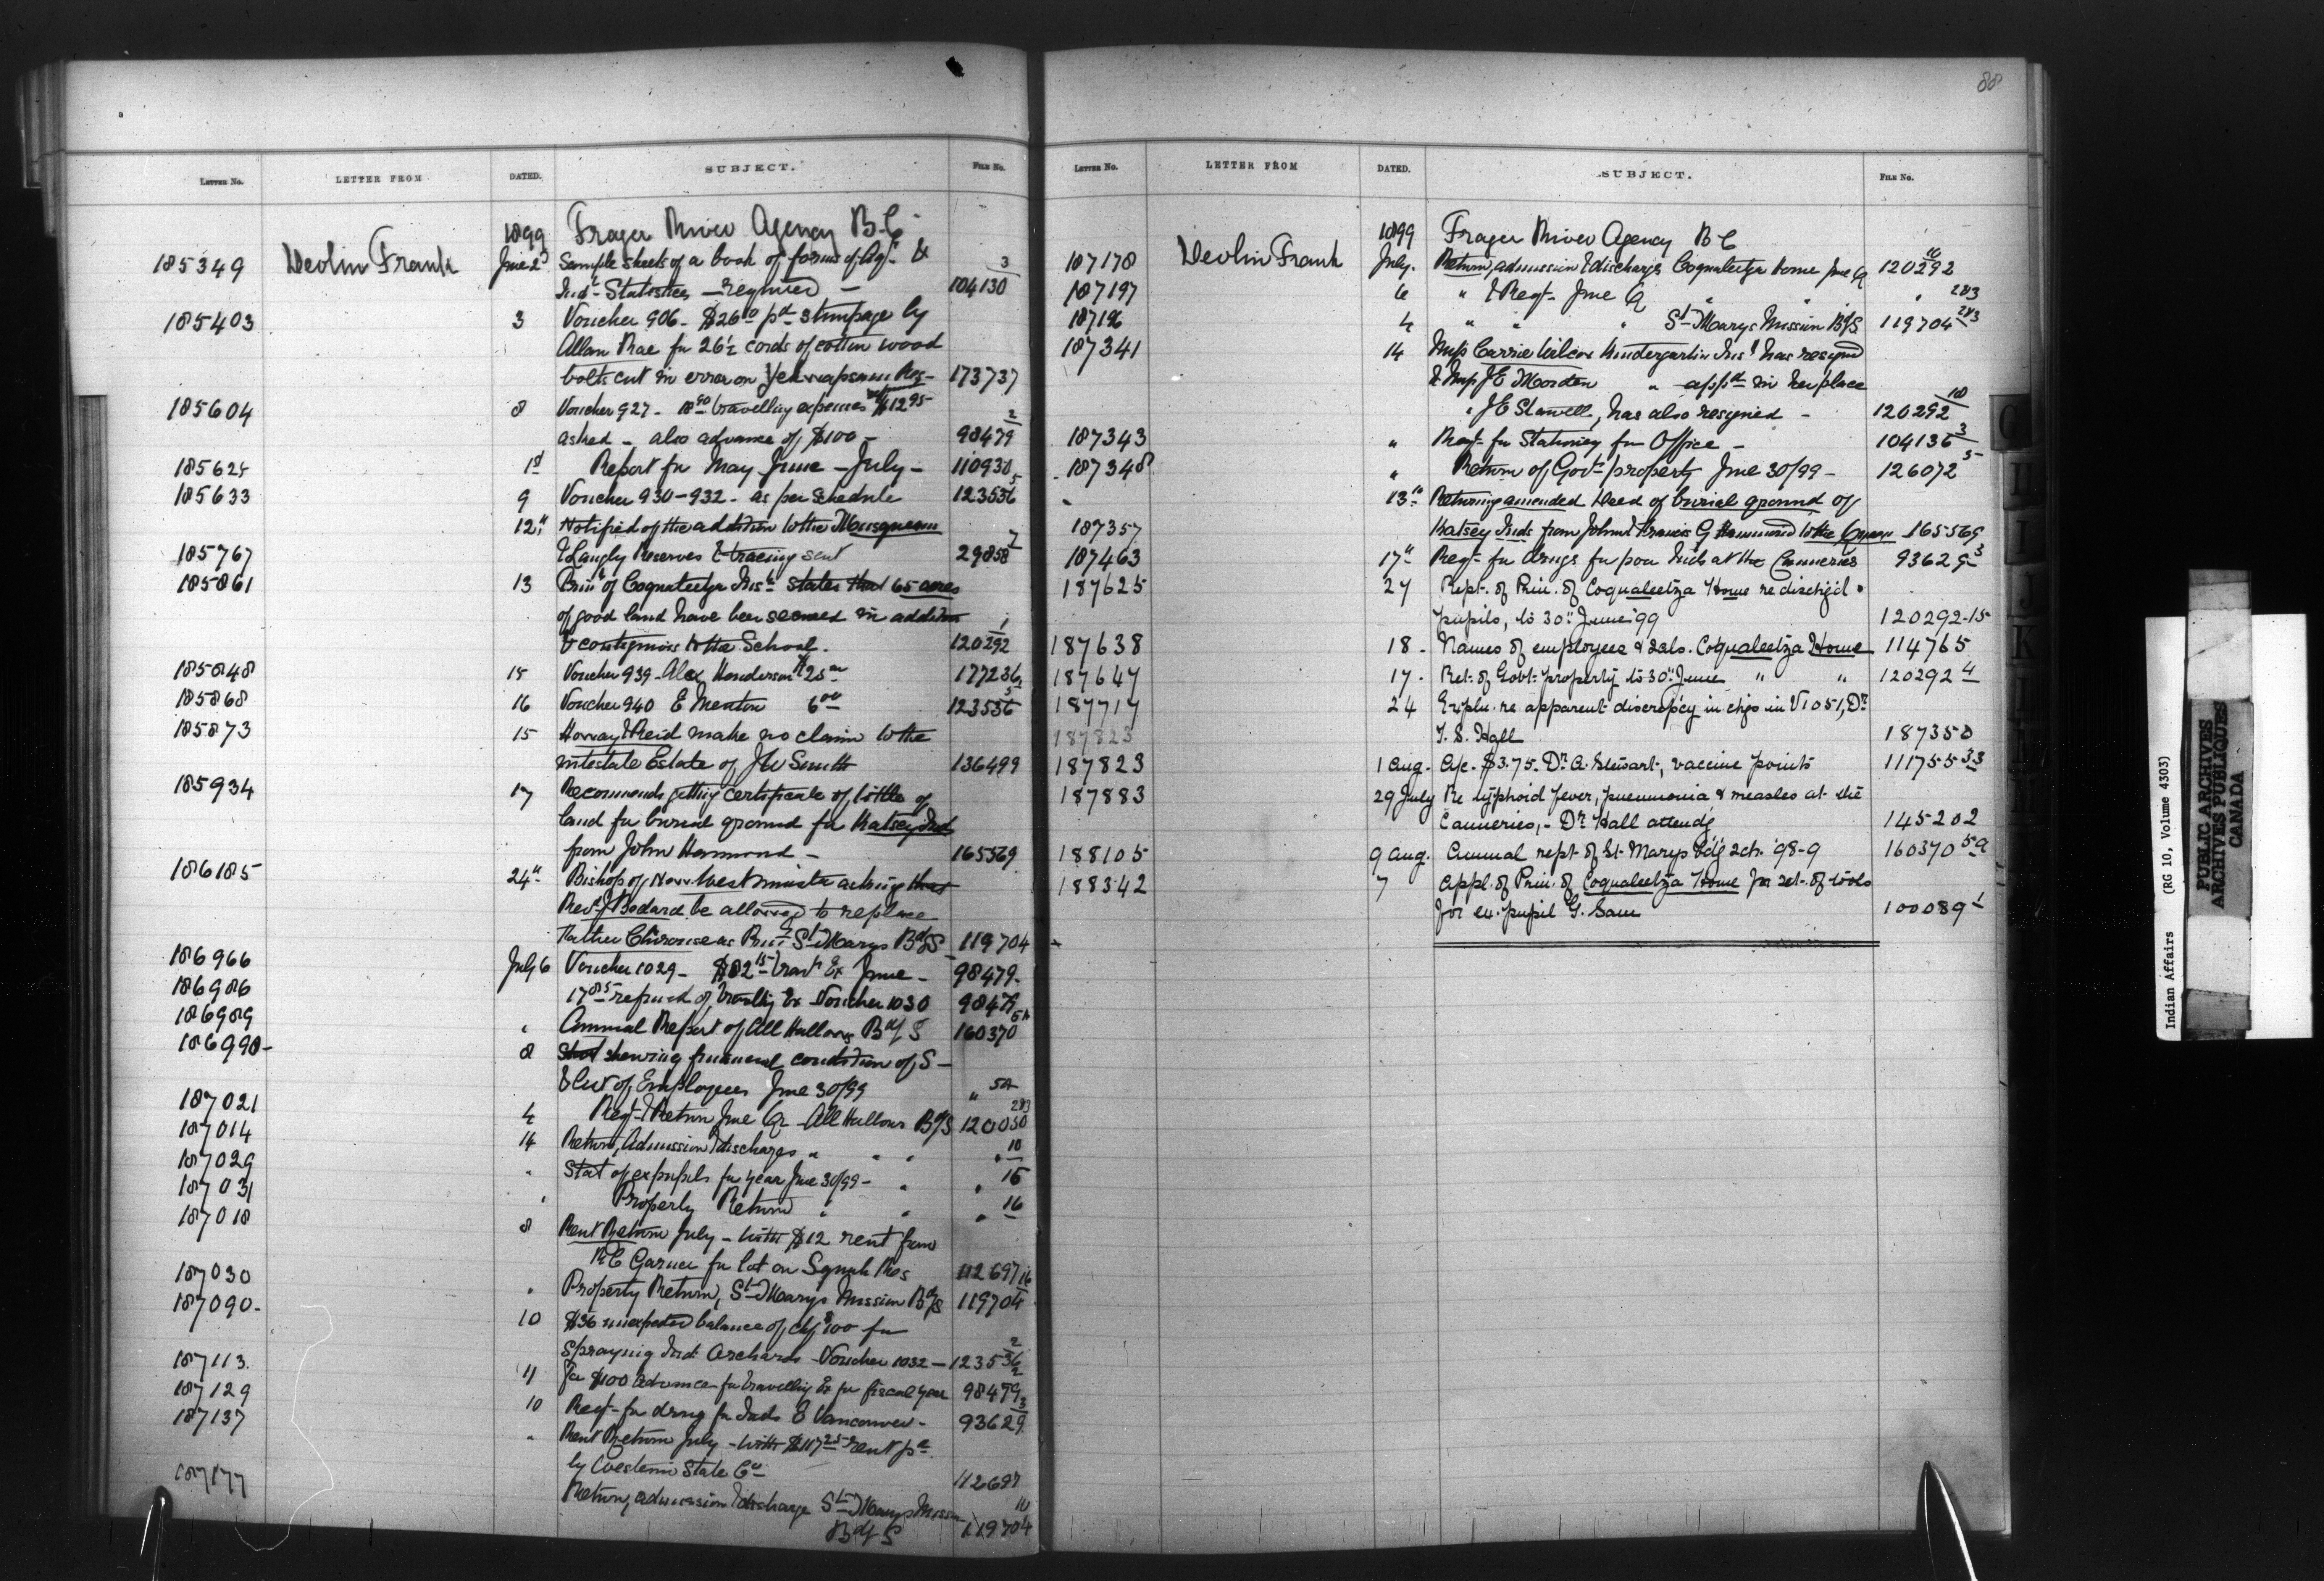 88
LETTER No. LETTER FROM DATED. SUBJECT. FILE No.
1899 Fraser River Agency B.C
185349 Devlin Frank June 2 Sample sheets of a book of forms of Agl. &
Indl. Statistics — required — 104130 3
185403 3 Voucher 906 - $26.50 pd stumpage by
Allan Rae for 26½ cords of cotton wood
bolts cut in error on Res - 173737
185604 8 Voucher 927 - 18.90 travelling expenses $12.95
asked - also advance of $100 - 98479 2
185625 1st Report for May June - July - 110930
185633 9 Voucher 930-932 - as per schedule 123536 5
12" Notified of the addition to the Musqueam
185767 & Langly Reserves & tracing sent 29858 7
185861 13 Prin. of Coqualeetza Inst. states that 65 acres
of good land have been secured in addition
& contiguous to the School. 120292 1
185848 15 Voucher 939 - Alex Henderson $25.00 177236
185868 16 Voucher 940 E Menten 6.00 123536 5
185873 15 Harvay & Reid make no claim to the
intestate Estate of J W Smith 136499
185934 17 Recommends getting certificate of tittle of
land for burial ground for Katsey Ind
from John Hammond - 165569
186185 24" Bishop of New Westminster asking that
Revd. J Bedard be allowed to replace
Father Chirouse as Prin. St Marys Bdg S 119704
186966 July 6 Voucher 1029 - $82.15 travl Ex June - 98479
186986 17.85 refund of travllg Ex Voucher 1030 98479
186989 " Annual Report of All Hallows Bdg S 160370 5A
186990- 8 Stat shewing financial condition of S -
& list of Employees June 30/99 " 5A
187021 4 Reqt & Return June Qr - All Hallows Bdg S 120050 2&3
187014 14 Return, Admission & discharges " " " " 10
187029 " Stat of expupils for year June 30/99 - " " 15
187031 " Property Return " " " 16
187018 8 Rent Return July - with $12 rent from
R C Garner for lot on Squah Res 112697
187030 " Property Return, St Marys Mission Bdg S 119704 16
187090- 10 $36 unexpended balance of chq $100 for
spraying Ind. Orchards - Voucher 1032 - 123536 2
187113. 11 For $100 advance for travelling Ex for fiscal year 98479 2
187129 10 Reqt - for drug for Inds @ Vancouver - 93629 3
187137 " Rent Return July - with $117.25 rent pd
by Western State Co 112697
187177 Return, admission & discharge St Marys Mission
Bdg S 119704 10
LETTER No. LETTER FROM DATED. SUBJECT. FILE No.
1899 Fraser River Agency B.C
187178 Devlin Frank July. Return, admission & discharge Coqualeetza Home June Q 120292 10
187197 6 " & Reqt - June Q " " " 2&3
187196 4 " " " St Marys Mission Bdg S 119704 2&3
187341 14 Miss Carrie Wilcox Kindergartin Inst has resigned
& Miss J E Morden " appd in her place
" J E Stawell, has also resigned - 120292 10
187343 " Reqt - for Stationery for Office - 104136 3
187348 " Return of Govt property June 30/99 - 126072 5
13" Returning amended Deed of burial ground of
187357 Katsey Inds from John & Francis G Hammond to the Queen 165569
187463 17" Reqt - for drugs for poor Inds at the Canneries 93629 3
187625 27 Rept. of Prin. of Coqualeetza Home re dischg'd.
pupils, to 30" June '99 120292-15
187638 18. Names of employees & sals. Coqualeetza Home 114765
187647 17. Ret. of Govt. property to 30" June " " 120292 4
187717 24 Expln. re apparent discrep'cy in chgs in V1051, Dr.
187823 T. S. Hall 187350
187823 1 Aug. A/c. $3.75. Dr. A. Stewart, vaccine points 111755 33
187883 29 July Re typhoid fever, pneumonia & measles at the
Canneries, - Dr. Hall attendg 145202
188105 9 Aug. Annual rept. of St. Marys Bdg Sch. '98-9 160370 5A
188342 7 Appl. of Prin. of Coqualeetza Home for set. of tools
for ex. pupil G. Sam 100089 1
G
H
I
J
K
L
M
Indian Affairs (RG 10, Volume 4303)
PUBLIC ARCHIVES
ARCHIVES PUBLIQUES
CANADA